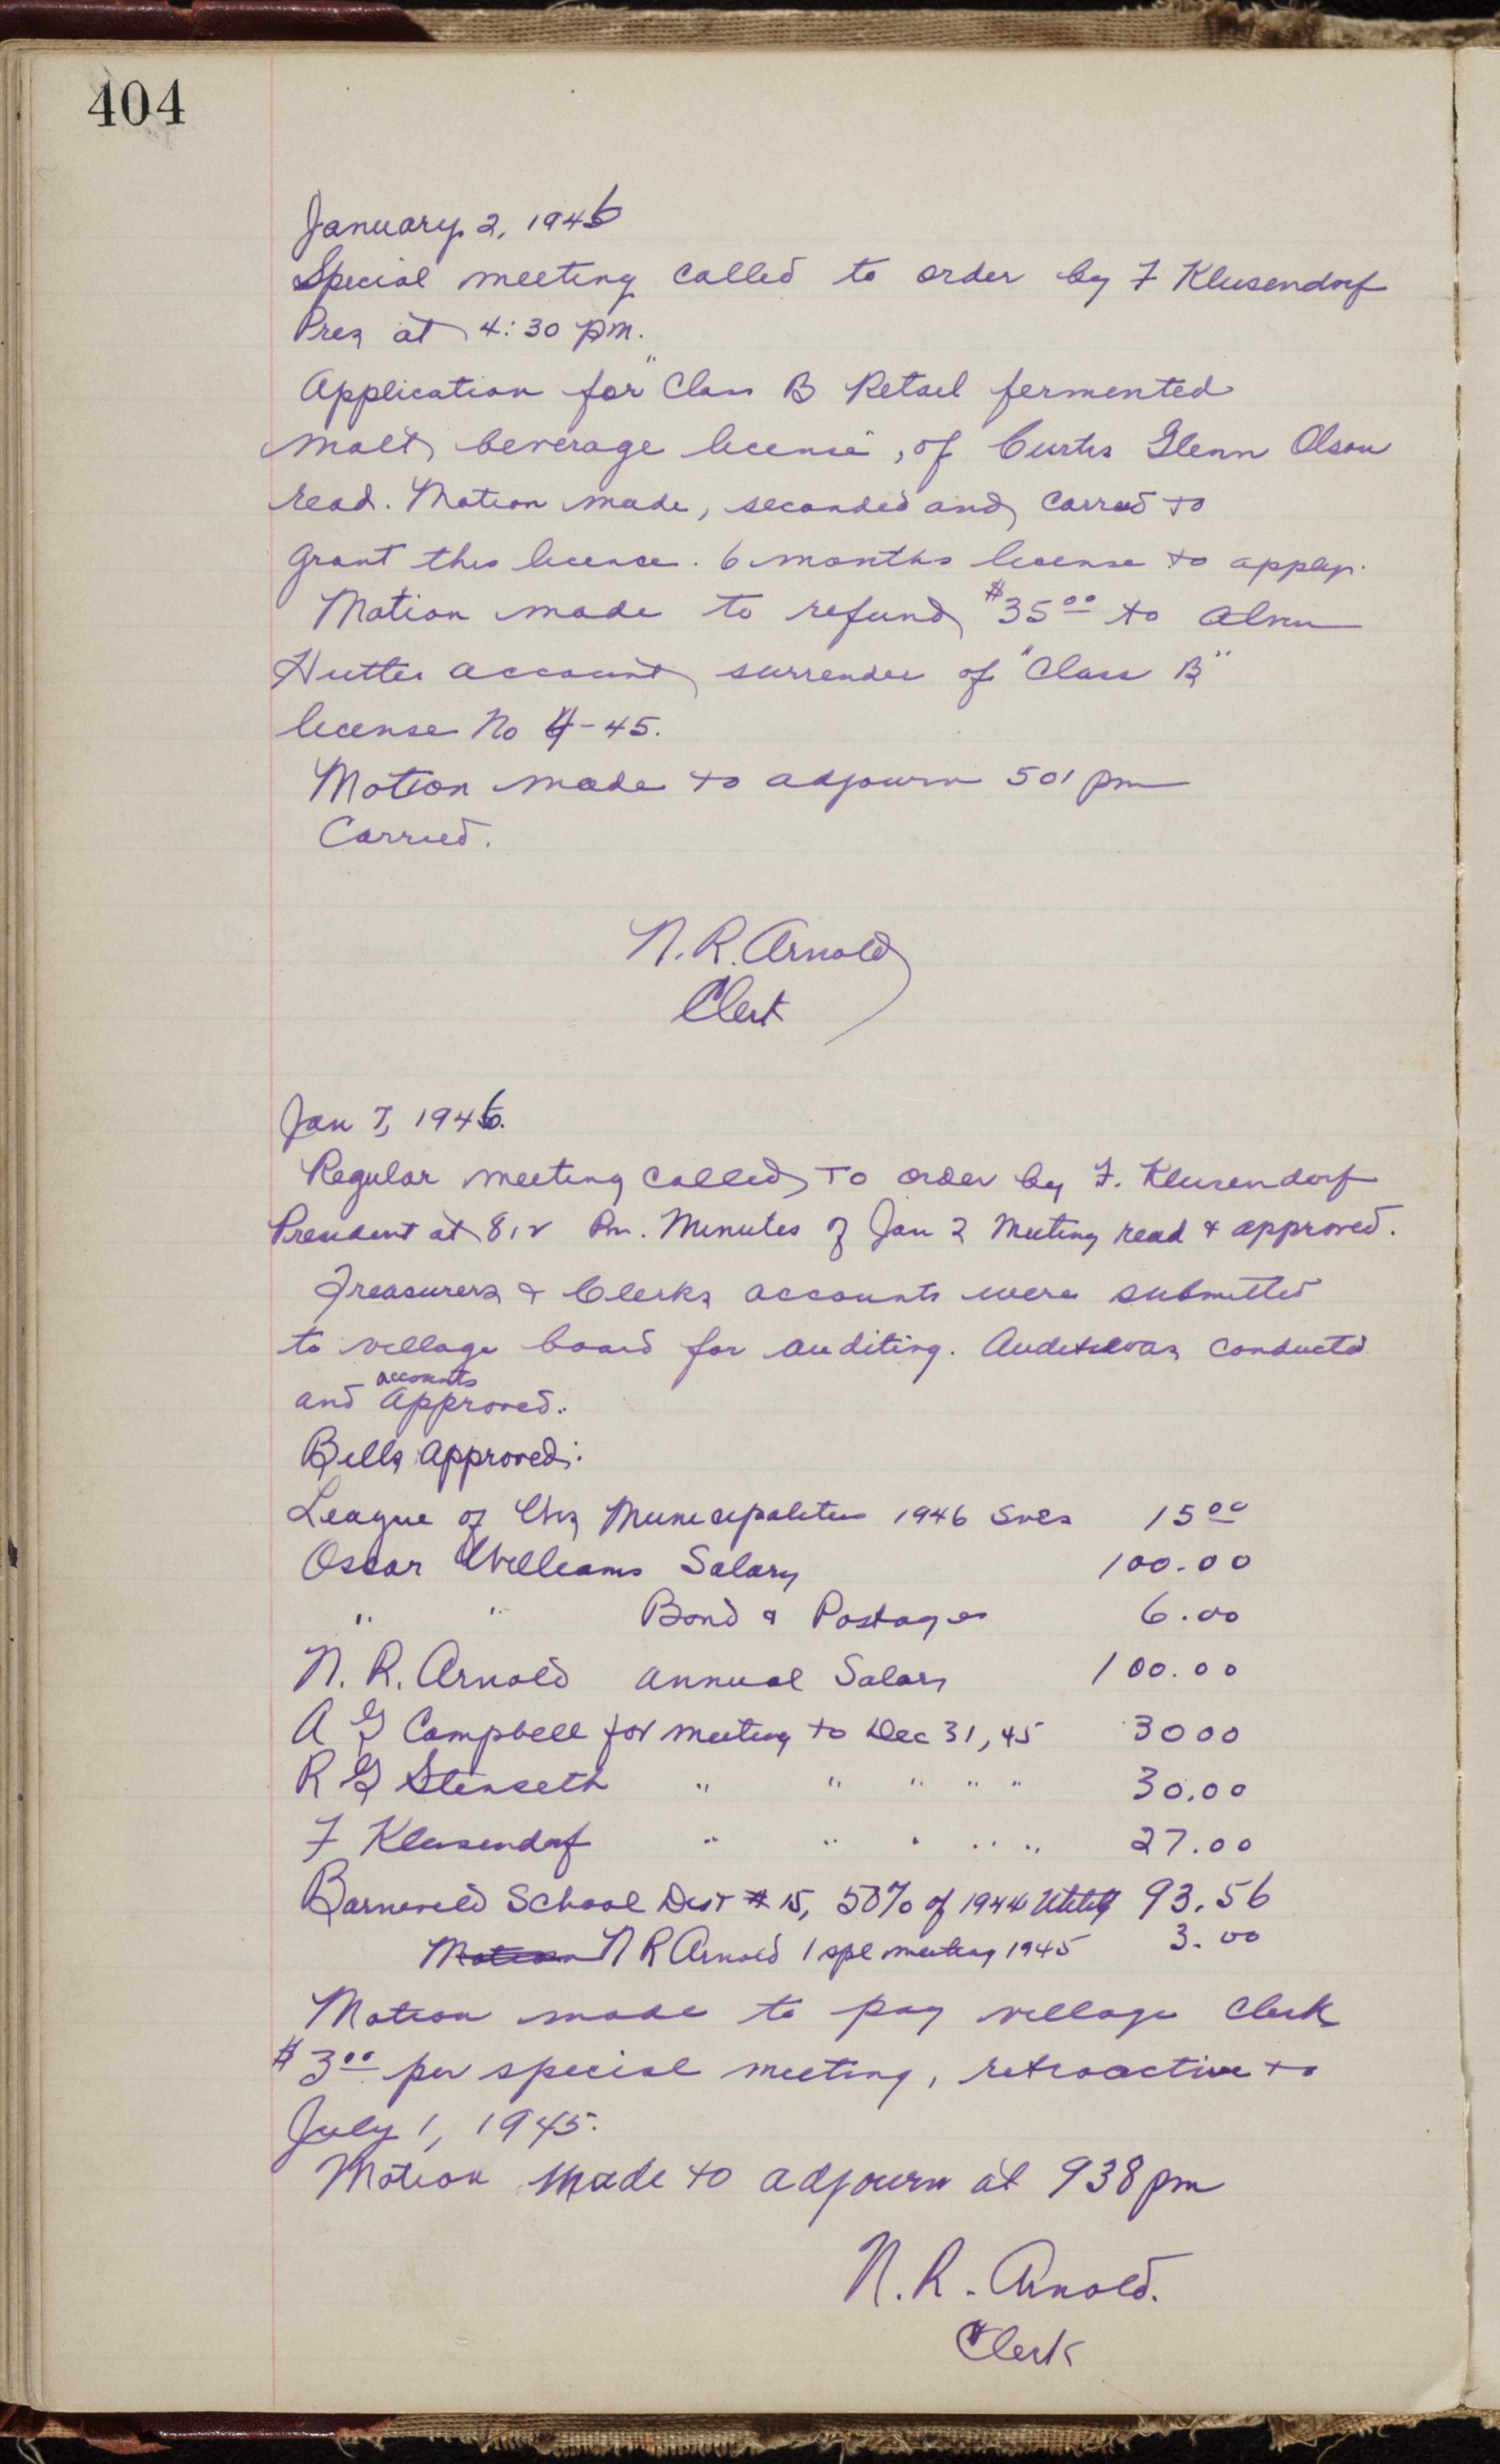 404
January 2, 1946
Special meeting called to order by F Klusendorf
Pres at 4:30 pm.
Application for "Class B Retail fermented
malt beverage license", of Curtis Glenn Olson
read. Motion made, seconded and carried to
grant this licence. 6 months license to apply.
Motion made to refund $35.00 to
Hutter account surrender of "Class B"
license No 4-45.
Motion made to adjourn 501 pm
Carried.
N. R. Arnold
Clerk
Jan 7, 1946.
Regular meeting called to order by F. Klusendorf
President at Pm. Minutes of Jan 2 Meeting read & approved.
Treasurers & Clerks accounts were submitted
to village board for auditing. Audit was conducted
accounts
and approved.
Bills approved:
League of Wis Municipalities 1946 15 00
Oscar Williams Salary 100.00
" " Bond & Postage 6.00
N. R. Arnold annual Salary 100.00
A G Campbell for meeting to Dec 31, 45 30 00
R G Stenseth " " " " " 30.00
F Klusendorf " " " " " 27.00
Barneveld School Dist # 15, 50% of 1944 Utility 93.56
Motion N R Arnold 1 spl meeting 1945 3.00
Motion made to pay village clerk
$3.00 per special meeting, retroactive to
July 1, 1945.
Motion made to adjourn at 938 pm
N. R. Arnold.
Clerk